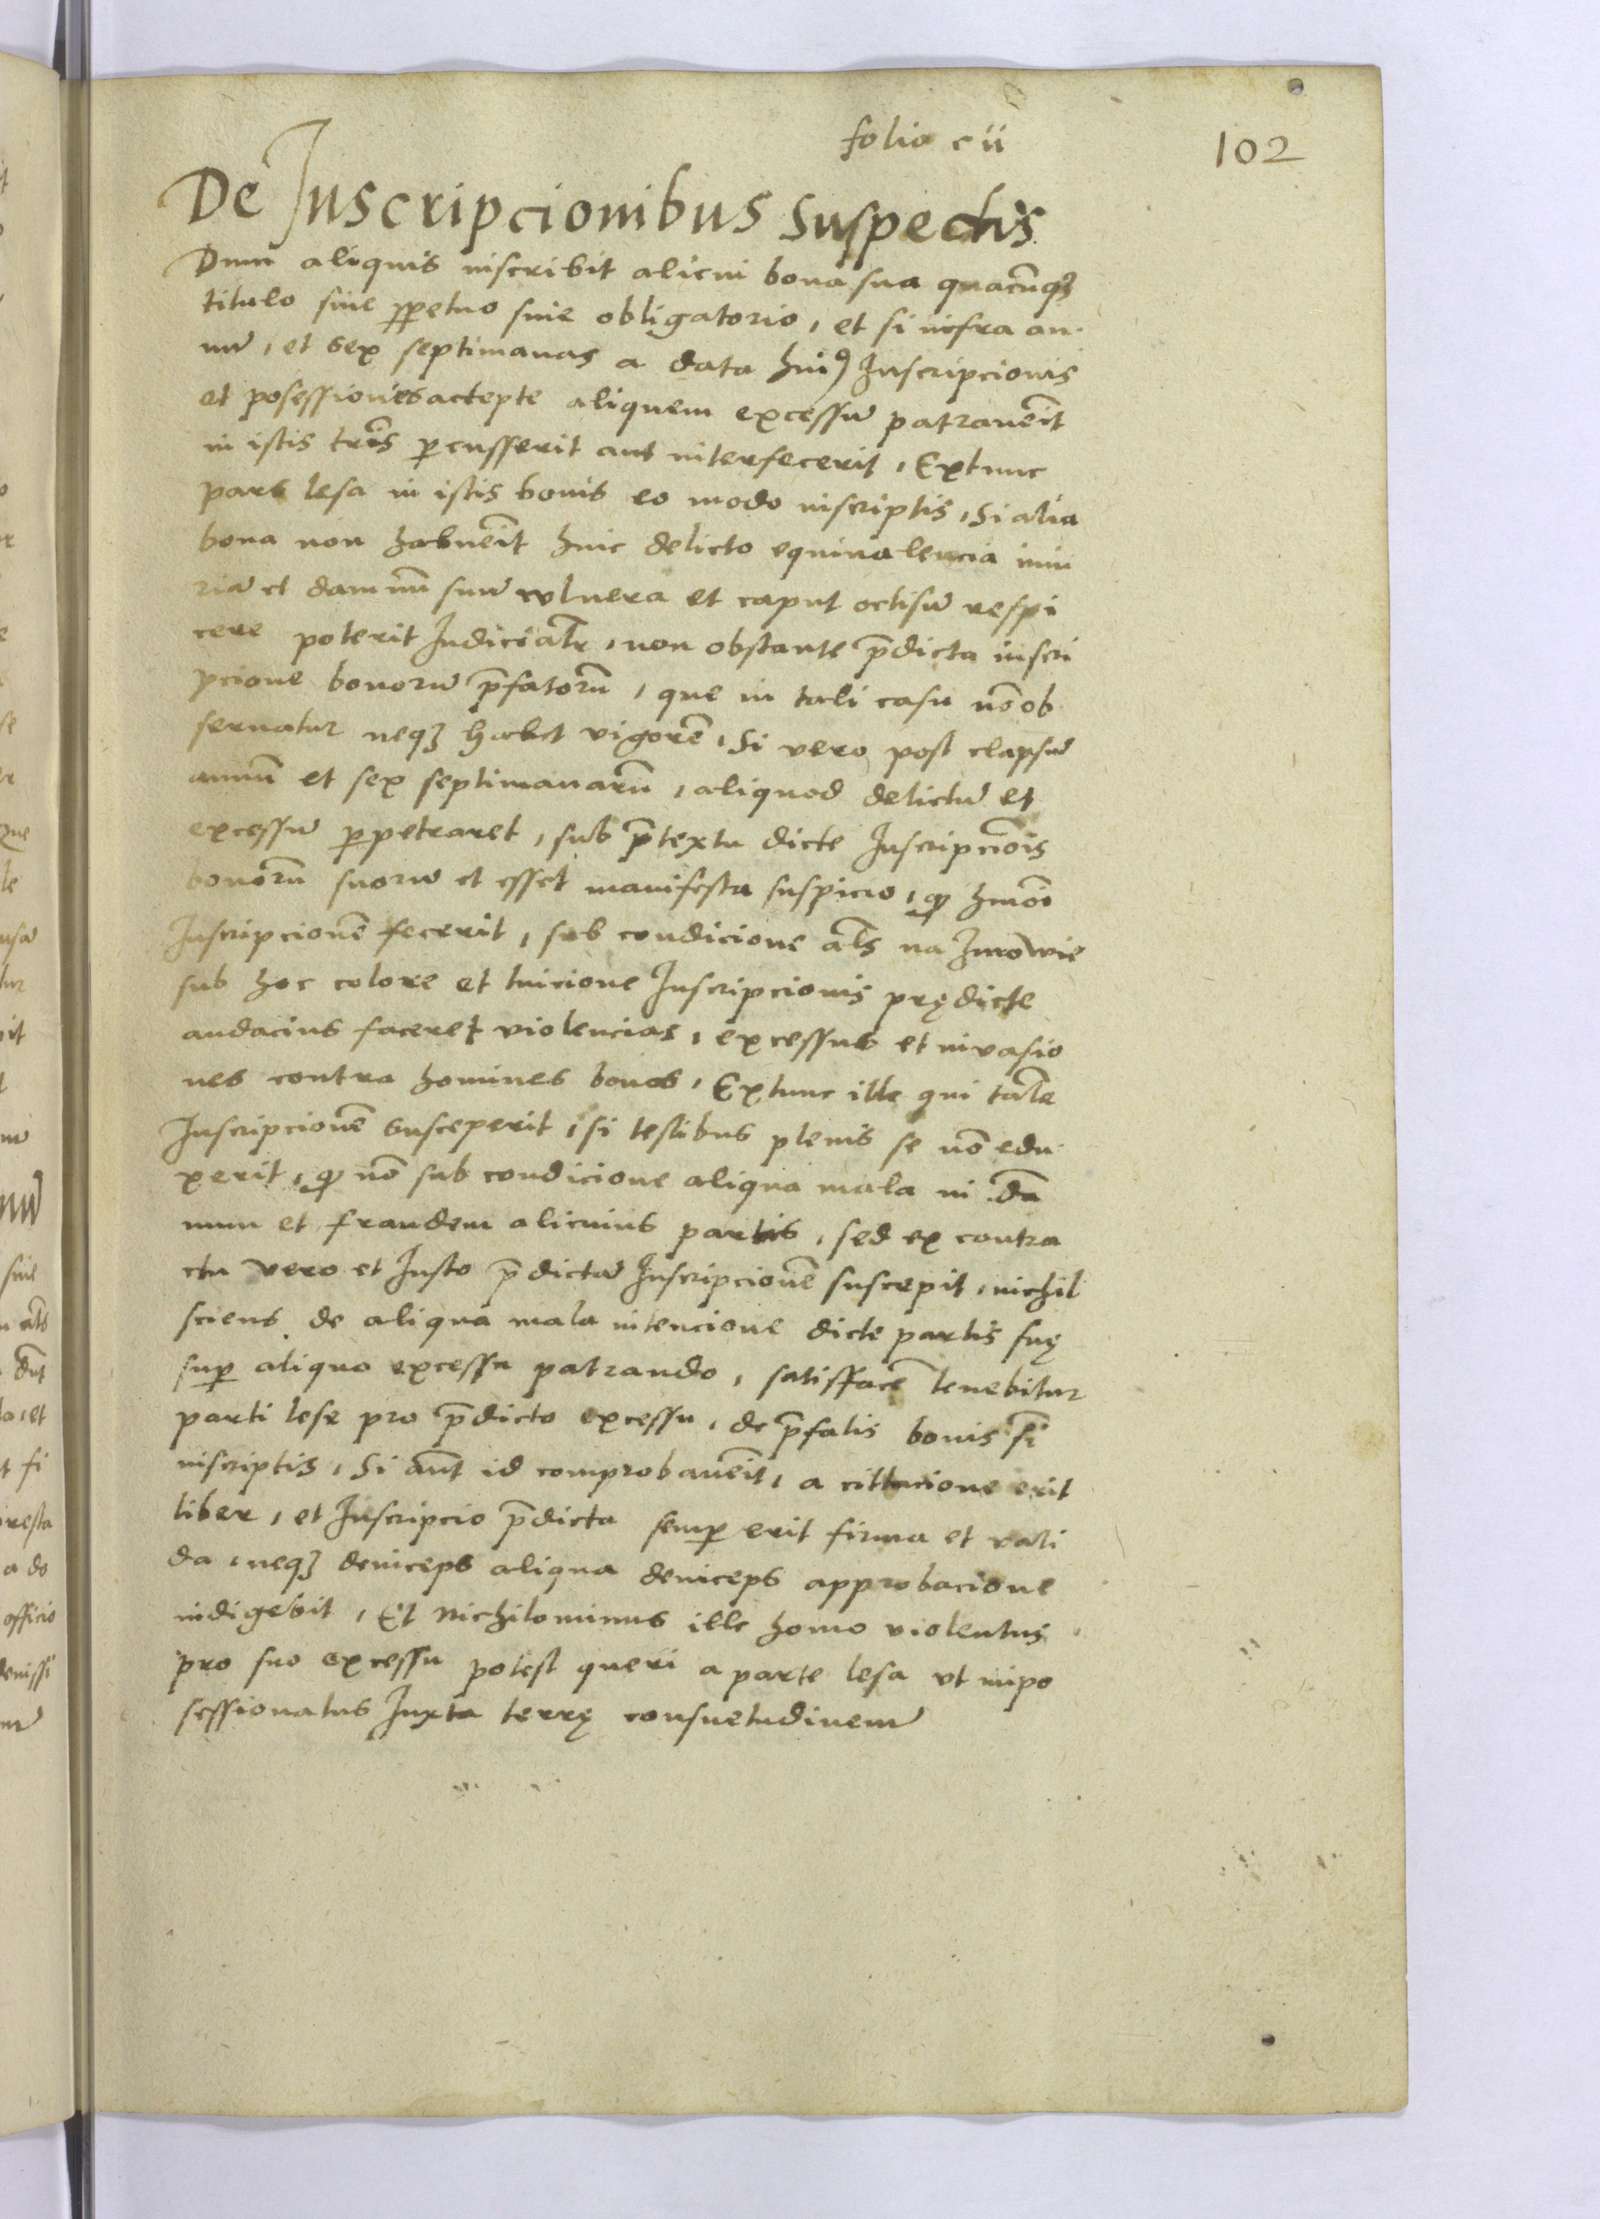 folio cii
102
De Inscripcionibus suspectis
Dum aliquis inscribit alicui bona sua quacũqꝫ
titulo siue ꝑpetuo siue obligatorio, et si infra an-
nũ, et sex septimanas a data huiꝰ Inscripcionis
et posessiones actepte aliquem excessũ patraueĩt
in istis tr̃is ꝑcusserit aut interfecerit, Extunc
pars lesa in istis bonis eo modo inscriptis, Si alia
bona non habueĩt huic delicto equiualencia iniu
riã et damnũ suũ vulnera et caput octisũ respi
cere poterit Iudicial̃r, non obstante p̃dicta inscri
pcione bonorũ p̃fatorũ, que in tali casu nõ ob
seruatur neqꝫ habet vigorẽ, Si vero post elapsũ
annũ et sex septimanarũ, aliquod delictũ et
excessũ ꝑpetraret, sub p̃textu dicte Inscripciõis
bonorũ suorũ et esset manifesta suspicio, ꝙ hmõi
Inscripcionẽ fecerit, sub condicione al̃s na Imowie
sub hoc colore et tuicione Inscripcionis prędicte
audacius faceret violencias, excessus et inuasio
nes contra homines bonos, Extunc ille qui talẽ
Inscripcionẽ susceperit, si testibus plenis se nõ edu
xerit, ꝙ nõ sub condicione aliqua mala in dã
num et fraudem alicuius partis, sed ex contra
ctu vero et Iusto p̃dictã Inscripcionẽ suscepit, nichil
sciens de aliqua mala intencione dicte partis suę
suꝑ aliquo excessu patrando, satisfacẽ tenebitur
parti lese pro p̃dicto excessu, de p̃fatis bonis s̃i
inscriptis, Si aũt id comprobaueĩt, a cittacione erit
liber, et Inscripcio p̃dicta semꝑ erit firma et vali
da, neqꝫ deinceps aliqua deinceps approbacione
indigebit, Et nichilominus ille homo violentus
pro suo excessu potest queri a parte lesa vt inpo
sessionatus Iuxta terrę consuetudinem